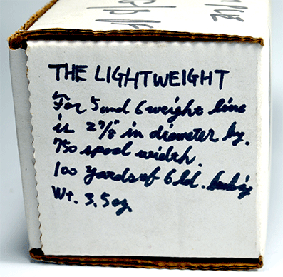 THE LIGHTWEIGHT
For 5 and 6 weight line
is 2 7/8 in diameter by
.750 spool width.
100 yards of 6 lb. backing
Wt. 3.5 oz.